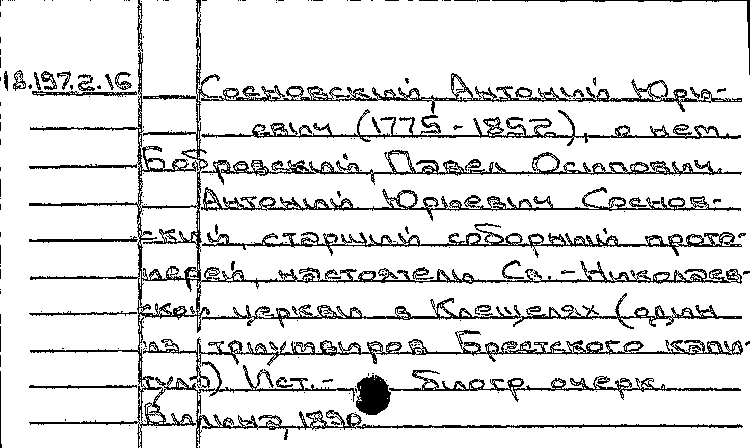 18.197.2.16 Сосновский, Антоний Юрь-
евич (1775-1852), о нем.
Бобровский, Павел Осипович.
Антоний Юрьевич Соснов-
ский, старший соборный прото-
иерей, настоятель Св.-Николаев-
ской церкви в Клещелях (один
из триумвиров Брестского капи-
тула). Ист.- биогр. очерк.
Вильна, 1890